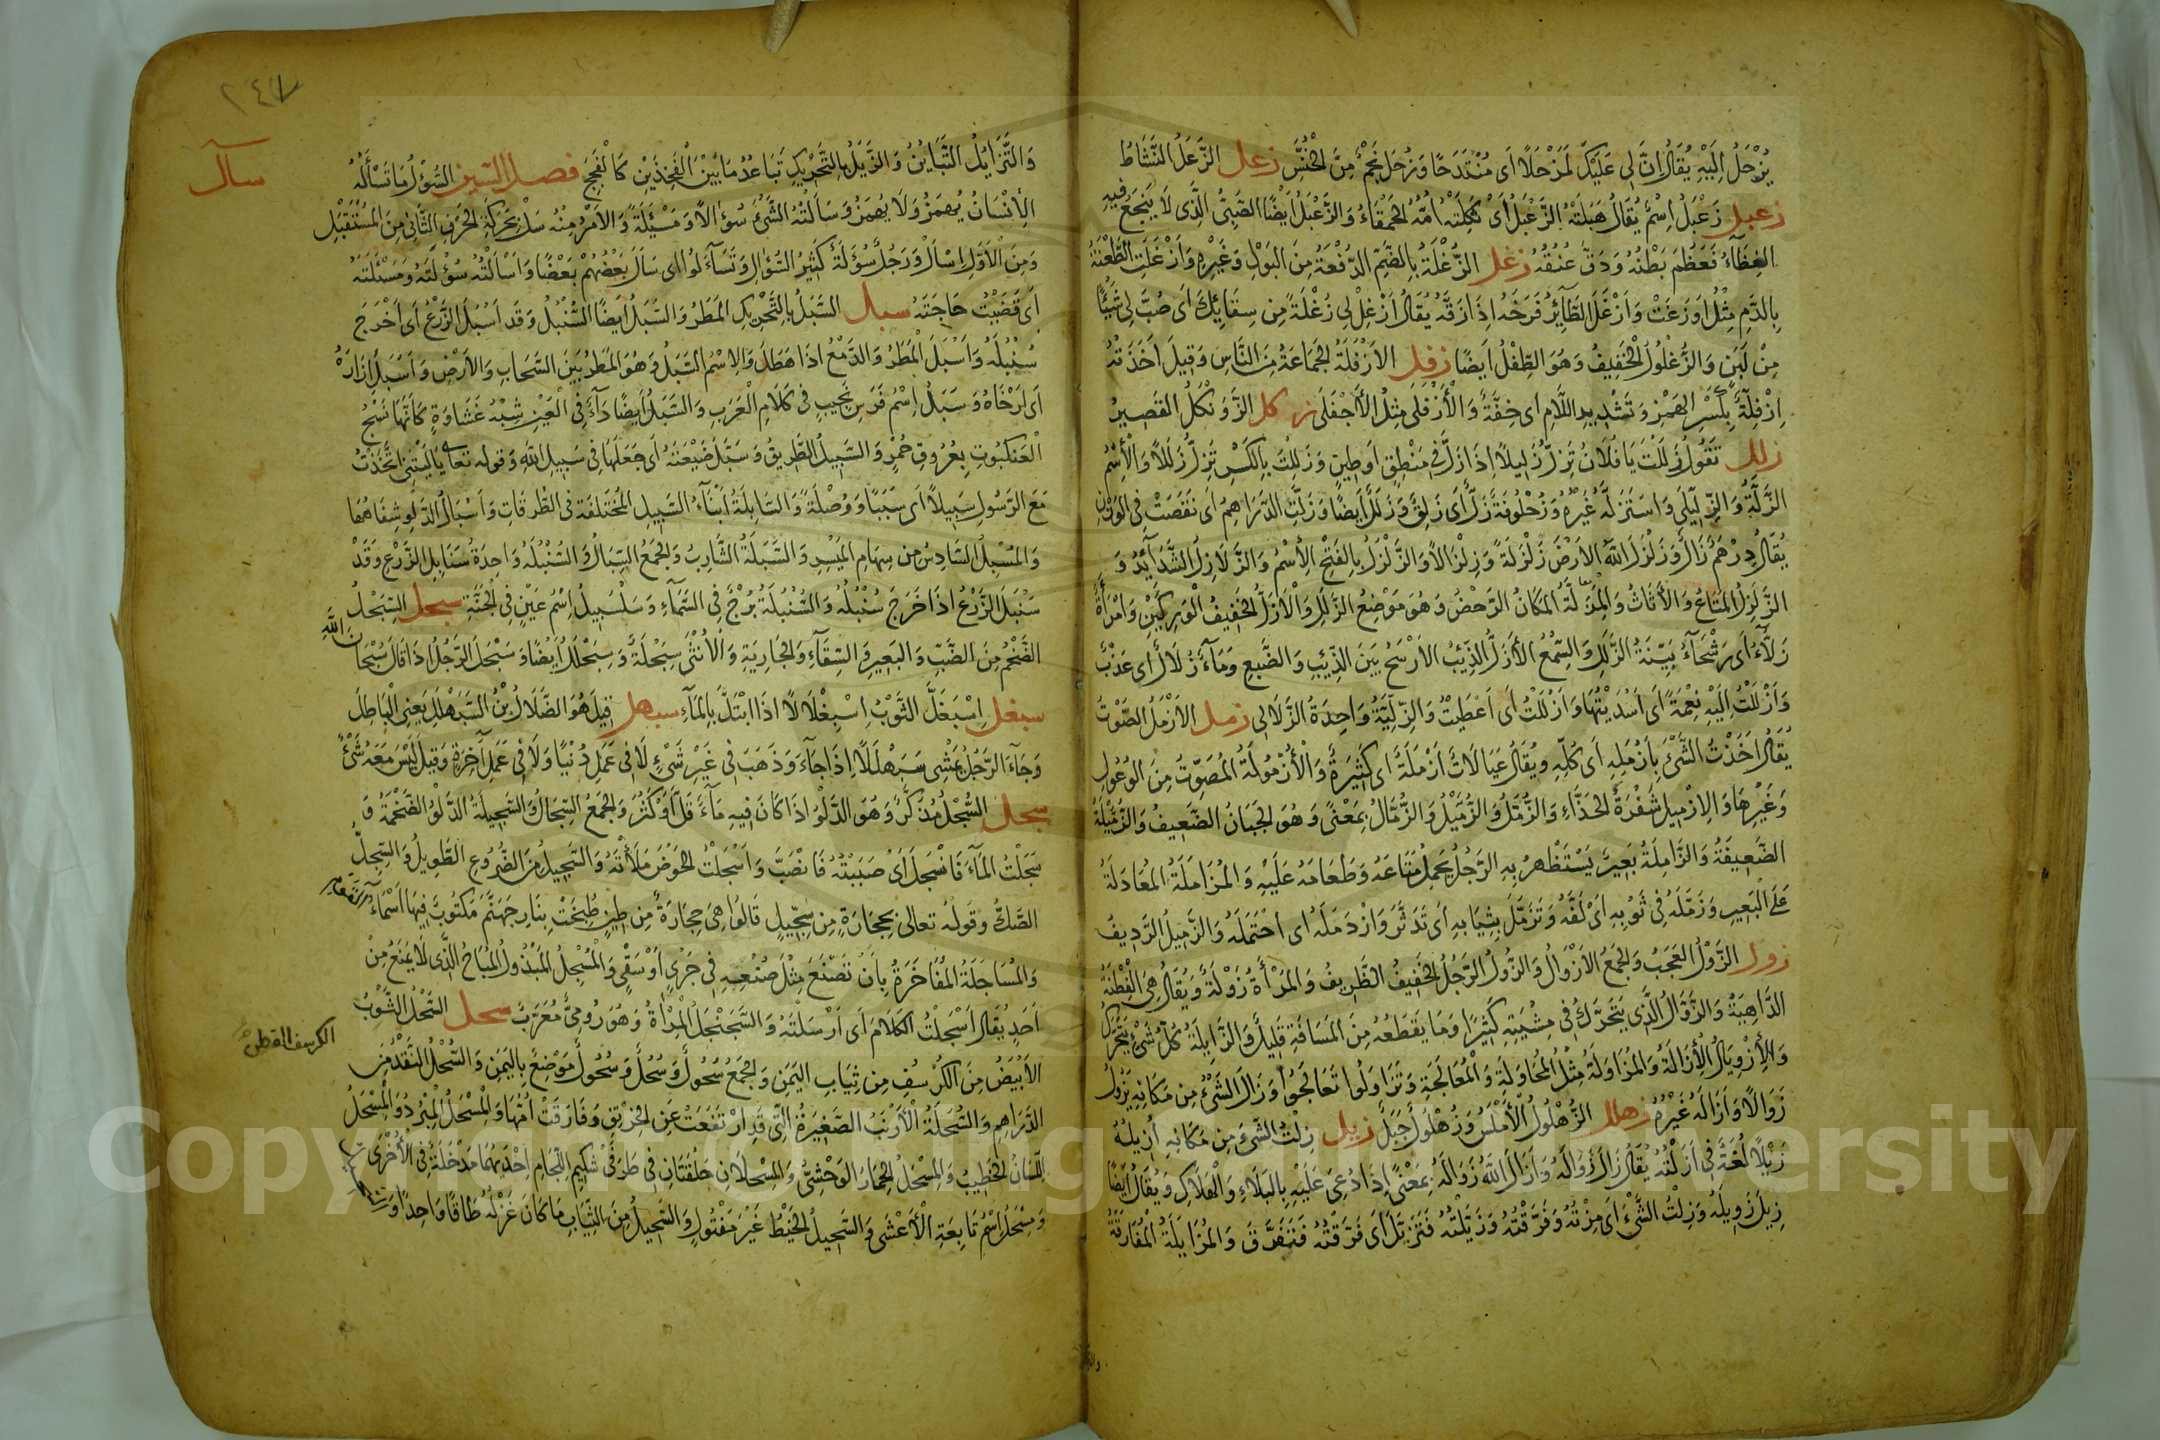 يُزْحَلُ اِلَيْهِ يُقَالُ اِنَّ لِي عَلَيْكَ لَمَزْحَلًا اَى مُنْتَدَحًا وَزُحَلُ نَجْمٌ مِنَ الْخُنَّسِ زعل الزَّعَلُ النَّشَاطُ
زعبل زَعْبَلٌ اِسْمٌ يُقَالُ هَبِلَتْهُ الزَّعْبَلُ اَىْ ثَكِلَتْهُ اُمُّهُ الحَمْقَاءُ وَالزَّعْبَلُ اَيْضًا الصَّبِىُّ الَّذِى لَا يَنْجَعُ فِيهِ
الغِذَآءُ فَعَظُمَ بَطْنُهُ وَدَقَّ عُنُقُهُ زغل الزُّغْلَةُ بِالضَّمِ الدُّفْعَةُ مِنَ البَوْلِ وَغَيْرِهِ وَاَزْغَلَتِ الطَّعْنَةُ
بِالدَّمِ مِثْلُ اَوْزَغَتْ وَاَزْغَلَ الطَّآئِرُ فَرْخَهُ اِذَا زَقَّهُ يُقَالُ اَزْغِلْ لِى زُغْلَةً مِن سِقَائِكَ اَى صُبَّ لِى شَيْئًا
مِنْ لَبَنٍ وَالزُّغْلُولُ الْخَفِيفُ وَهُوَ الطِّفْلُ اَيضًا زفل الاَزْفَلَةُ الجَمَاعَةُ مِنَ النَّاسِ وَقِيلَ اَخَذَتْهُ
اِزْفِلَّةٌ بِكَسْرِ الهَمْزِ وَتَشْدِيدِ اللَّامِ اى خِفَّةٌ وَالْأَزْفَلَى مِثْلُ الْأَجْفَلَى زكل الزَّوَنْكَلُ القَصِيرُ
زلل تَقُولُ زَلَلْتَ يَا فُلَانُ تَزِلُّ زَلِيلًا اِذَا زَلَّ فِى مَنْطِقٍ اَو طِينٍ وَزَلِلْتَ بِالكَسْرِ تَزَلُّ زَلَلًا وَالْاِسْمُ
الزَّلَّةُ وَالزِّلِّيلَى وَاسْتَزَلَّهُ غَيْرُهُ وَزُحْلُوفَةٌ زُلٌّ اى زَلِقٌ وَزَلَلٌ اَيضًا وَزَلَّتِ الدَّرَاهِمُ اَى نَقَصَتْ فِى الوَزْنِ
يُقَالُ دِرْهَمٌ زَالٌّ وَزَلْزَلَ اللهُ الاَرْضَ زَلْزَلَةً وَزِلْزَالًا وَالزَّلْزَلُ بِالفَتْحِ الاِسْمُ وَالزَّلَازِلُ الشَّدَآئِدُ وَ
الزَّلَزِلُ المَتَاعُ وَالأَثَاثُ وَالمَزَلَّةُ المَكَانُ الدَّحْضُ وَهُوَ مَوْضِعُ الزَّلَلِ وَالْأَزَلُّ الخَفِيفُ الْوَرِكَيْنِ وَامْرَأَةٌ
زَلَّآءُ اَى رَسْحَآءُ بَيِّنَةُ الزَّلَلِ وَالسِّمْعُ الأَزَلُّ الذِّيبُ الاَرْسَحُ بَينَ الذِّيبِ وَالضَّبُعِ وَمَآءٌ زُلَالٌ اى عَذْبٌ
وَاَزْلَلْتُ اِلَيْهِ نِعْمَةً اَى اَسْدَيْتُهَا وَاَزْلَلْتُ اَى اَعْطَيْتُ وَالزِّلِّيَّةُ وَاحِدَةُ الزَّلَالِى زمل الاَزْمَلُ الصَّوْتُ
يُقَالُ اَخَذْتُ الشَّىْءَ بِاَزْمَلِهِ اَى كُلِّهِ وَيُقَالُ عِيَالَاتٌ اَزْمَلَةٌ اى كَثِيرَةٌ وَالْأُزْمُولَةُ المُصَوِّتُ مِنَ الوُعُولِ
وَغَيْرِهَا وَالاِزْمِيلُ شَفْرَةُ الحَذَّاءِ وَالزُّمَّلُ وَالزُّمَيْلُ وَالزُّمَّالُ بِمَعْنًى وَهُوَ الجَبَانُ الضَّعِيفُ وَالزُّمَّيْلَةُ
الضَّعِيفَةُ وَالزَّامِلَةُ بَعِيرٌ يَسْتَظْهِرُ بِهِ الرَّجُلُ يَحْمِلُ مَتَاعَهُ وَطَعَامَهُ عَلَيْهِ وَالمُزَامَلَةُ المُعَادَلَةُ
عَلَى الْبَعِيرِ وَزَمَّلَهُ فِى ثَوْبِهِ اَىْ لَفَّهُ وَتَزَمَّلَ بِثِيَابِهِ اَى تَدَثَّرَ وَازْدَمَلَهُ اى احْتَمَلَهُ وَالزَّمِيلُ الرَّدِيفُ
زول الزَّوْلُ العَجَبُ وَالجَمْعُ الاَزْوَالُ وَالزَّوْلُ الرَّجُلُ الخَفِيفُ الظَّرِيفُ وَالمَرْأَةُ زَوْلَةٌ وَيُقَالُ هِىَ الْفِطْنَةُ
الدَّاهِيَةُ وَالزَّوَّالُ الَّذِى يَتَحَرَّكُ فِى مِشْيَتِهِ كَثِيرًا وَمَا يَقْطَعُهُ مِنَ المَسَافَةِ قَلِيلٌ وَالزَّايِلَةُ كُلُّ شَىْءٍ يَتَحَرَّكُ
وَالاِزْوِيَالُ الْأِزَالَةُ وَالمُزَاوَلَةُ مِثْلُ المُحَاوَلَةِ وَالْمُعَالَجَةِ وَتَزَاوَلُوا تَعَالَجُوا وَزَالَ الشَّىْءُ مِن مَكَانِهِ يَزُولُ
زَوَالًا وَاَزَالَهُ غَيْرُهُ زهلل الزُّهْلُولُ الْأَمْلَسُ وَزُهْلُولٌ جَبَلٌ زيل زِلْتُ الشَّىْءَ مِن مَكَانِهِ اَزِيلُهُ
زَيْلًا لُغَةٌ فِى اَزَلْتُهُ يُقَالُ زَالَ زَوَالُهُ وَاَزَالَ اللهُ زَوَالَهُ بِمَعْنًى اِذَا دُعِىَ عَلَيْهِ بِالبَلَاءِ وَالهَلَاكِ وَيُقَالُ اَيْضًا
زِيلَ زَوِيلُهُ وَزِلْتُ الشَّىْءَ اَى مِزْتُهُ وَفَرَّقْتُهُ وَزَيَّلْتُهُ فَتَزَيَّلَ اَى فَرَّقْتُهُ فَتَفَرَّقَ وَالمُزَايَلَةُ الْمُفَارَقَةُ
٢٤٧
سأل
وَالتَّزَايُلُ التَّبَايُنُ وَالزَّيَلُ بِالتَّحْرِيكِ تَبَاعُدُ مَا بَيْنَ الْفَخِذَيْنِ كَالْفَجَجِ فصل السين السُّؤْلُ مَا تَسْأَلُهُ
الْاِنْسَانُ يُهمَزُ وَلَا يُهمَزُ وَسَأَلْتُهُ الشَّىْءَ سُؤَالًا وَمَسْئَلَةً وَالاَمْرُ مِنْهُ سَلْ بِحَرَكَةِ الحَرْفِ الثَّانِى مِنَ المُسْتَقْبَلِ
وَمِنَ الْاَوَّلِ اِسْأَلْ وَرَجُلٌ سُؤَلَةٌ كَثِيرُ السُّؤَالِ وَتَسَآءَلُوا اى سَأَلَ بَعْضُهُمْ بَعْضًا وَاَسْأَلْتُهُ سُؤْلَتَهُ وَمَسْئَلَتَهُ
اَى قَضَيْتُ حَاجَتَهُ سبل السَّبَلُ بِالتَّحْرِيكِ المَطَرُ وَالسَّبَلُ اَيضًا السُّنْبُلُ وَقَد اَسْبَلَ الزَّرْعُ اَى اَخْرَجَ
سُنْبُلَهُ وَاَسْبَلَ الْمَطَرُ وَالدَّمْعُ اذَا هَطَلَ وَالاِسْمُ السَّبَلُ وَهُوَ المَطَرُ بَيْنَ السَّحَابِ وَالاَرْضِ وَاَسْبَلَ اِزَارَهُ
اَى اَرْخَاهُ وَسَبَلٌ اِسْمُ فَرَسٍ نَجِيبٍ فِى كَلَامِ الْعَرَبِ وَالسَّبَلُ اَيضًا دَآءٌ فِى الْعَيْنِ شِبْهُ غِشَاوَةٍ كَاَنَّهَا نَسْجُ
الْعَنكَبُوتِ بِعُرُوقٍ حُمْرٍ وَالسَّبِيلُ الطَّرِيقُ وَسَبَّلَ ضَيْعَتَهُ اى جَعَلَهَا فِى سَبِيلِ اللهِ وَقوله تعالى يَالَيْتَنِى اتَّخَذْتُ
مَعَ الرَّسُولِ سَبِيلًا اَى سَبَبًا وَوُصْلَةً وَالسَّابِلَةُ اَبْنَآءُ السَّبِيلِ المُخْتَلِفَةُ فِى الطُّرقَاتِ وَاَسْبَالُ الدَّلْوِ شِفَاهُهَا
وَالمُسْبِلُ السَّادِسُ مِن سِهَامِ المَيْسِرِ وَالسَّبَلَةُ الشَّارِبُ وَالجَمْعُ السِّبَالُ وَالسُّنْبُلَةُ وَاحِدَةُ سَنَابِلِ الزَّرْعِ وَقَدْ
سَنْبَلَ الزَّرْعُ اذَا خَرَجَ سُنْبُلُهُ وَالسُّنْبُلَةُ بُرْجٌ فِى السَّمَآءِ وَسَلْسَبِيلٌ اِسْمُ عَيْنٍ فِى الجَنَّةِ سبحل السِّبَحْلُ
الضَّخْمُ مِنَ الضَّبِّ وَالبَعِيرِ وَالسِّقَآءِ وَالجَارِيَةِ وَالْأُنْثَى سِبَحْلَةٌ وَسِبَحْلَلٌ اَيْضًا وَسَبْحَلَ الرَّجُلُ اذَا قَالَ سُبْحَانَ اللهِ
سبغل اِسْبَغَلَّ الثَّوْبُ اسْبِغْلَالًا اذَا ابْتَلَّ بِالمَآءِ سبهل قِيلَ هُوَ الضَّلَالُ بْنُ السَّبَهْلَلِ يَعنِى الْبَاطِلَ
وَجَآءَ الرَّجُلُ يَمْشِى سَبَهْلَلًا اِذَا جَآءَ وَذَهَبَ فِى غَيْرِ شَىْءٍ لَا فِى عَمَلِ دُنْيَا وَلَا فِى عَمَلِ آخِرَةٍ وَقِيلَ لَيْسَ مَعَهُ شَىْءٌ
سجل السَّجْلُ مُذَكَّرٌ وَهُوَ الدَّلْوُ اذَا كَانَ فِيهِ مَآءٌ قَلَّ اَوْ كَثُرَ وَالجَمْعُ السِّجَالُ وَالسَّجِيلَةُ الدَّلْوُ الضَّخْمَةُ وَ
سَجَلْتُ المَآءَ فَانْسَجَلَ اَىْ صَبَبْتُهُ فَانْصَبَّ وَاَسْجَلْتُ الحَوْضَ مَلَأْتُهُ وَالسَّجِيلُ مِنَ الضُّرُوعِ الطَّوِيلُ وَالسِّجِلُّ
الصَّكُّ وَقَولُهُ تعالى بِحِجَارَةٍ مِن سِجِّيلٍ قَالُوا هِىَ حِجَارَةٌ مِن طِينٍ طُبِخَتْ بِنَارِ جَهَنَّمَ مَكْتُوبٌ فِيهَا اَسْمَآءُ
وَالمُسَاجَلَةُ المُفَاخَرَةُ بِاَنْ تَصْنَعَ مِثْلَ صُنْعِهِ فِى جَرْىٍ اَوْ سَقْىٍ وَالْمُسْجَلُ المَبْذُولُ المُبَاحُ الَّذِى لَا يُمْنَعُ مِنْ
اَحَدٍ يُقَالُ اَسْجَلْتُ الكَلَامَ اَى اَرْسَلْتُهُ وَالسَّجَنْجَلُ الْمِرْاٰةُ وَهُوَ رُومِىٌّ مُعَرَّبٌ سحل السَّحْلُ الثَّوْبُ
الكرسف القطن
الاَبْيَضُ مِنَ الكُرْسُفِ مِن ثِيَابِ اليَمَنِ وَالجَمْعُ سُحُولٌ وَسُحُلٌ وَسُحُولٌ مَوْضِعٌ بِاليَمَنِ وَالسَّحْلُ النَّقْدُ مِنَ
الدَّرَاهِمِ وَالسُّحَلَةُ الْأَرْنَبُ الصَّغِيرَةُ الَّتِى قَدِ ارْتَفَعَتْ عَنِ الخِرْنِقِ وَفَارَقَتْ اُمَّهَا وَالمِسْحَلُ الْمِبْرَدُ وَالْمِسْحَلُ
اللِّسَانُ الخَطِيبُ وَالمِسْحَلُ الحِمَارُ الوَحْشِىُّ وَالمِسْحَلَانِ حَلْقَتَانِ فِى طَرَفَىْ شَكِيمِ اللِّجَامِ اِحْدٰيهُمَا مُدْخَلَةٌ فِى الْأُخْرَى
وَمِسْحَلٌ اسْمُ تَابِعَةِ الْأَعْشَى وَالسَّحِيلُ الخَيْطُ غَيْرَ مَفْتُولٍ وَالسَّحِيلُ مِنَ الثِّيَابِ مَا كَانَ غَزْلُهُ طَاقًا وَاحِدًا وَ
Copyright © King Saud University